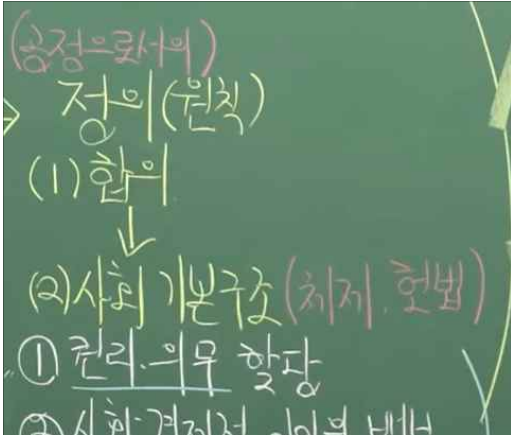 (공정으로서의)
정의(원칙)
(1) 합의
↓
(2) 사회 기본구조(체제, 헌법)
① 권리·의무 할당
② 사회·경제적